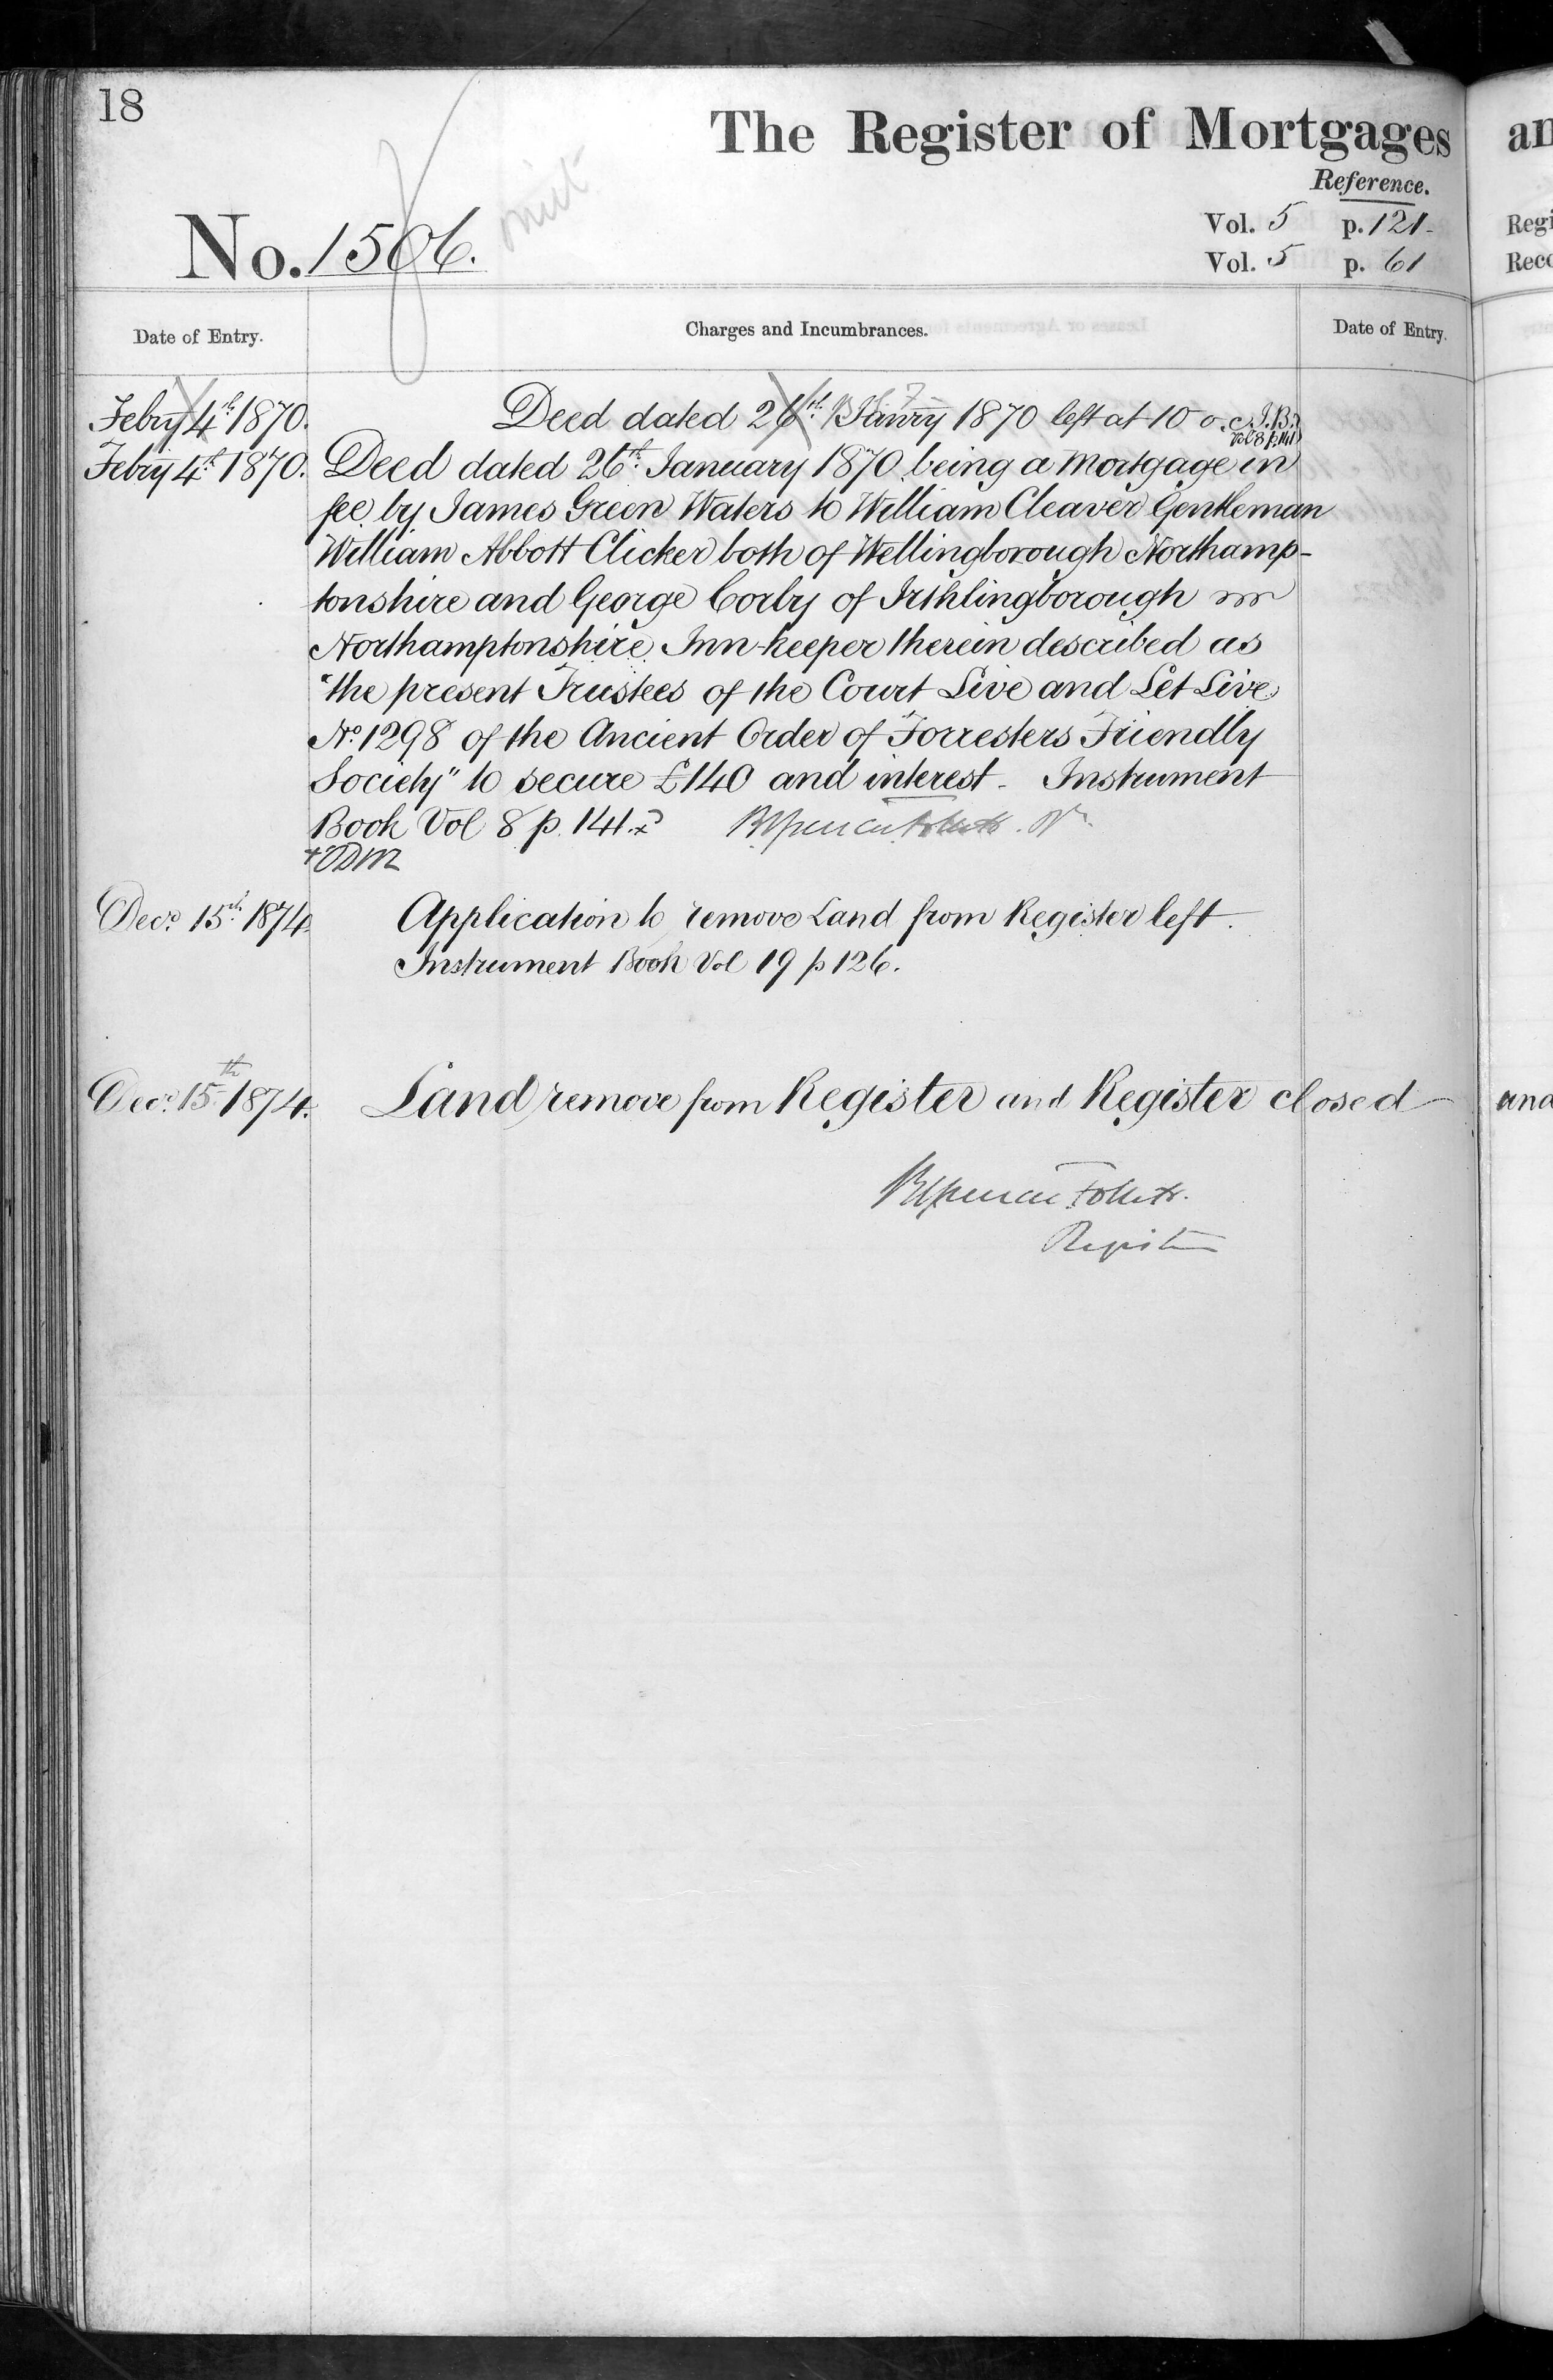 18
The Register of Mortgages
Reference.
No. 1506.
omit
Vol. 5 p. 121-
Vol. 5 p. 61
Date of Entry.
Charges and Incumbrances.
Date of Entry.
Febry 4th 1870. Deed dated 26th Janry 1870 left at 10 o.c I.B.
Vol 8 p 141
Febry 4th 1870. Deed dated 26th January 1870 being a Mortgage in
fee by James Green Waters to William Cleaver Gentleman
William Abbott Clicker both of Wellingborough Northamp-
tonshire and George Corby of Irthlingborough
Northamptonshire Inn-keeper therein described as
"the present Trustees of the Court Live and Let Live
No. 1298 of the Ancient Order of Forresters Friendly
Society" to secure £140 and interest - Instrument
Book Vol 8 p. 141. x
Decr 15th 1874. Application to remove Land from Register left.
Instrument Book Vol 19 p 126.
Decr 15th 1874. Land remove from Register and Register closed
Registrar
an
Regi
Reco
and